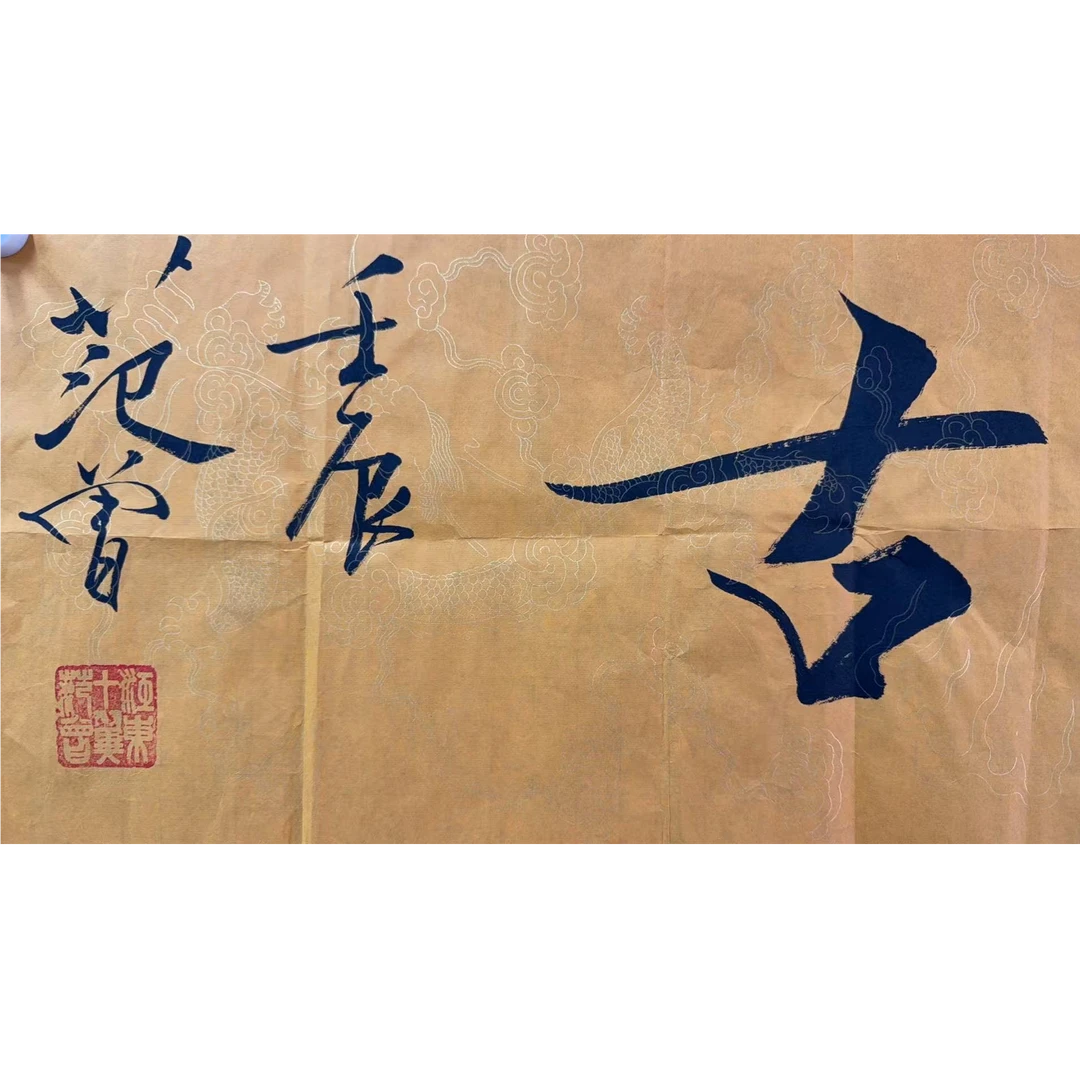 古
壬辰
范曾
江東
十翼
范曾